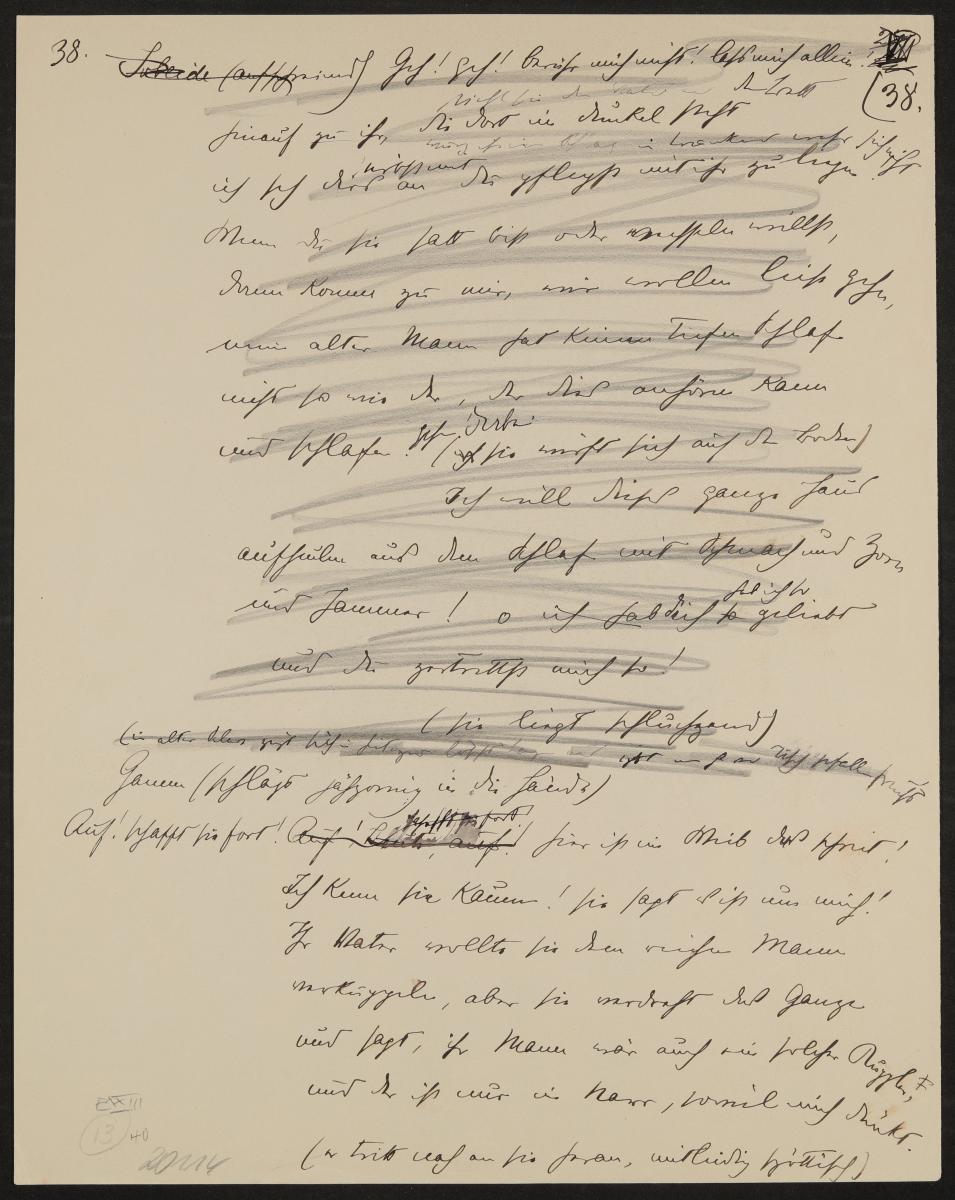 38. Sobeide (aufschreiend) Geh! geh! berühr mich nicht! lass mich allein! VII
(38.
hinauf zu ihr, die dort im dunkel steht
ich seh dirs an du pflegst mit ihr zu liegen
Wenn du sie satt bist oder wechseln willst,
dann komm zu mir, wir wollen leise gehn,
mein alter Mann hat keinen tiefen Schlaf
nicht so wie der, der dies anhören kann
und schlafen! (sie wirft sich auf den Boden)
Ich will dieses ganze Haus
aufheulen aus dem Schlaf mit Schmach und Zorn
hab ich so
und Jammer! o ich hab dich so geliebt
und du zertrittst mich so!
(sie liegt schluchzend)
Ganem (schlägt jähzornig in die Hände)
schafft sie fort!
Auf! schafft sie fort! Auf! Leute, auf! hier ist ein Weib das schreit!
Ich kenn sie kaum! sie sagt es ist um mich!
Ihr Vater wollte sie dem reichen Mann
verkuppeln, aber sie verdreht das Ganze
und sagt, ihr Mann wär auch ein solcher Kuppler,
und der ist nur ein Narr, soviel mich dünkt.
(er tritt nah an sie heran, mitleidig spöttisch)
EXIII
13
40